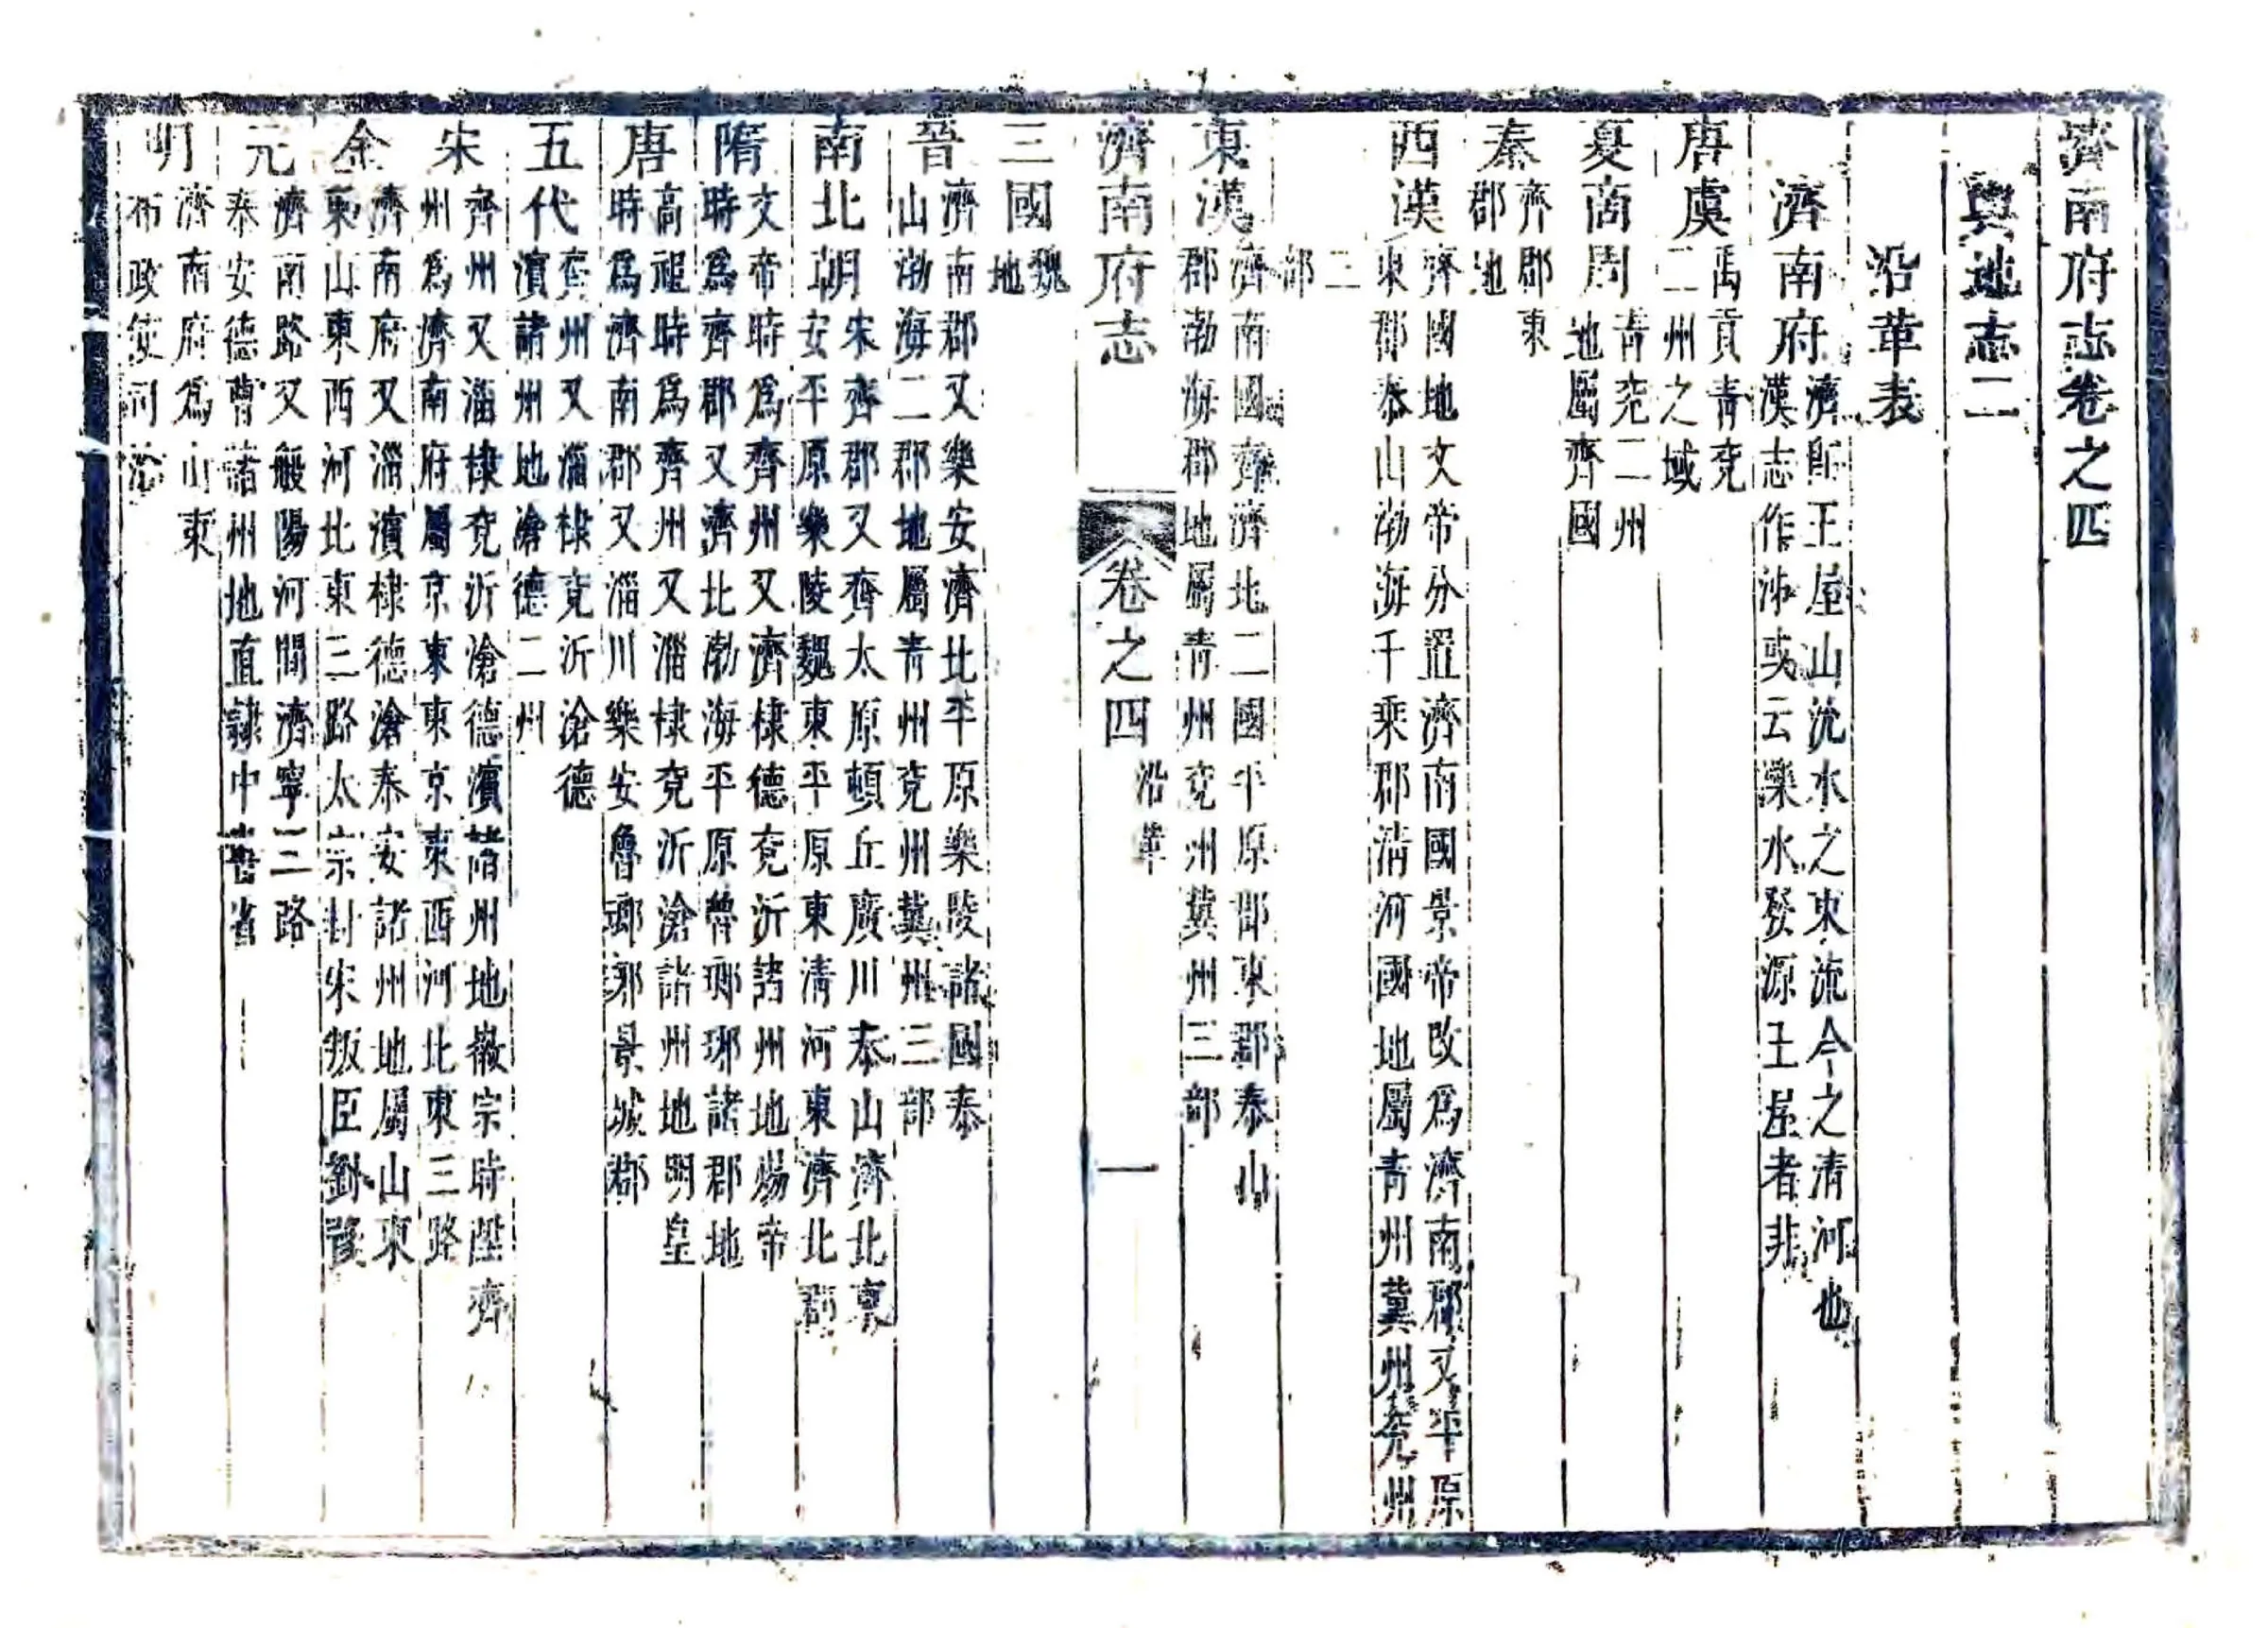 濟南府志卷之四
輿地志二
沿革表
濟南府
濟即王屋山沇水之東流今之清河也
漢志作泲或云濼水發源王屋者非
唐虞
禹貢青兗
二州之域
夏商周
青兗二州
地屬齊國
秦
齊郡東
郡地
西漢
齊國地文帝分置濟南國景帝改為濟南郡又平原
東郡泰山渤海千乘郡清河國地屬青州冀州兗州
三
部
東漢
濟南國齊濟北二國平原郡東郡泰山
郡渤海郡地屬青州兗州冀州三部
濟南府志
卷之四
沿革
一
三國
魏
地
晉
濟南郡又樂安濟北平原樂陵諸國泰
山渤海二郡地屬青州兗州冀州三部
南北朝
宋齊郡又齊太原頓丘廣川泰山濟北東
安平原樂陵魏東平原東清河東濟北郡
隋
文帝時為齊州又濟棣德兗沂諸州地煬帝
時為齊郡又濟北渤海平原魯瑯琊諸郡地
唐
高祖時為齊州又淄棣兗沂滄諸州地明皇
時為濟南郡又淄川樂安魯瑯琊景城郡
五代
齊州又淄棣兗沂滄德
濱諸州地滄德二州
宋
齊州又淄棣兗沂滄德濱諸州地徽宗時陞齊
州為濟南府屬京東東京東西河北東三路
金
濟南府又淄濱棣德滄泰安諸州地屬山東
東山東西河北東三路太宗封宋叛臣劉豫
元
濟南路又般陽河間濟寧三路
泰安德曹諸州地直隸中書省
明
濟南府為山東
布政使司治